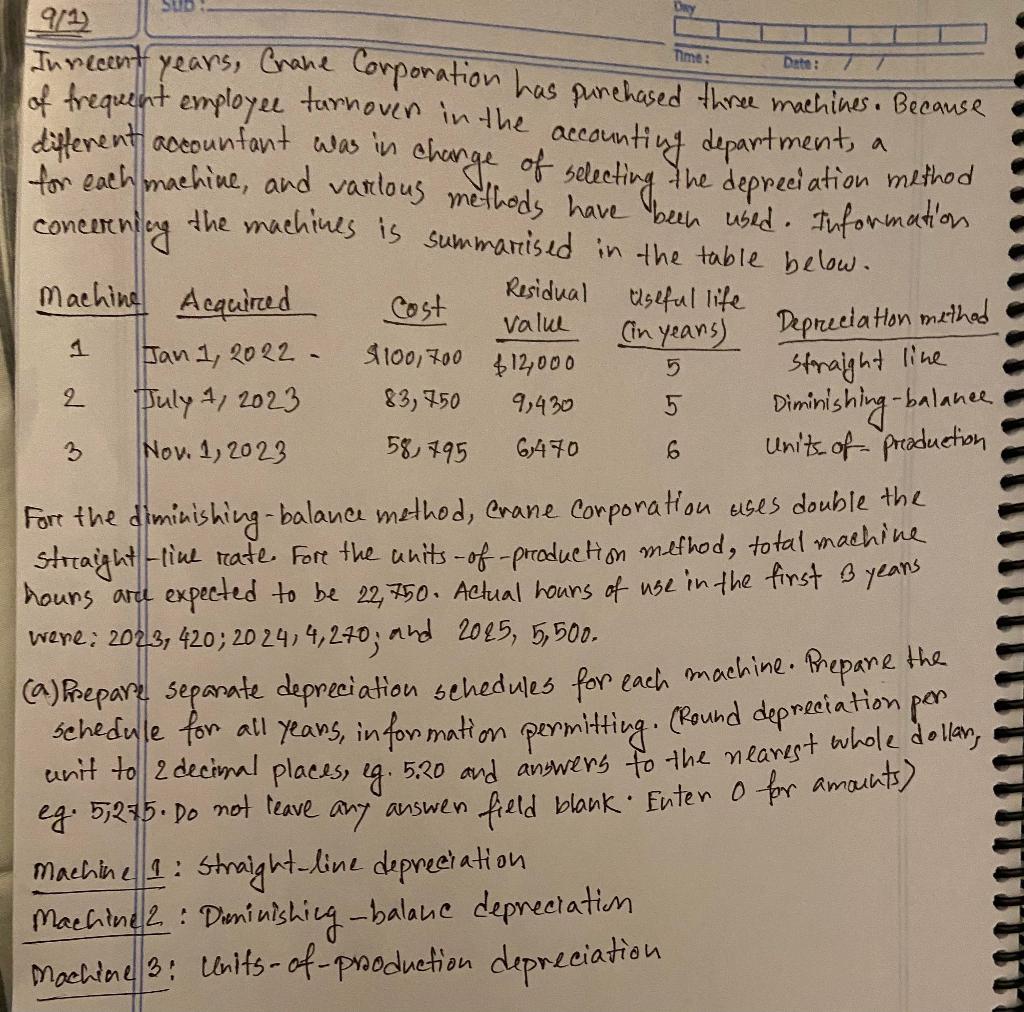 9/12
Sub:
Day
Time: Date: / /
In recent years, Crane Corporation has purchased three machines. Because
of frequent employee turnover in the accounting department, a
different accountant was in charge of selecting the depreciation method
for each machine, and various methods have been used. Information
concerning the machines is summarised in the table below.
Machine Acquired Cost Residual value Useful life (in years) Depreciation method
1 Jan 1, 2022 - $100,700 $12,000 5 straight line
2 July 1, 2023 83,750 9,430 5 Diminishing-balance
3 Nov. 1, 2023 58,795 6,470 6 Units-of-production
For the diminishing-balance method, Crane Corporation uses double the
straight-line rate. For the units-of-production method, total machine
hours are expected to be 22,750. Actual hours of use in the first 3 years
were: 2023, 420; 2024, 4,270; and 2025, 5,500.
(a) Prepare separate depreciation schedules for each machine. Prepare the
schedule for all years, information permitting. (Round depreciation per
unit to 2 decimal places, eg. 5.20 and answers to the nearest whole dollar,
eg. 5,275. Do not leave any answer field blank. Enter 0 for amounts)
Machine 1: Straight-line depreciation
Machine 2: Diminishing-balanc depreciation
Machine 3: Units-of-production depreciation